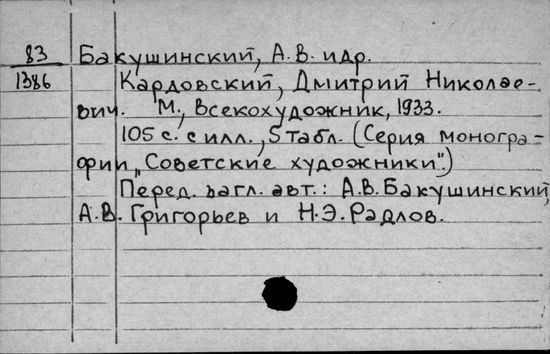 83 Бакушинский, А.В. и др.
1386 Кардовский, Дмитрий Николае-
вич. М., Всекохудожник, 1933.
105 с. с илл., 5 табл. (Серия моногра-
фии „Советские художники".)
Перед загл. авт.: А.В. Бакушинский,
А.В. Григорьев и Н.Э. Радлов.